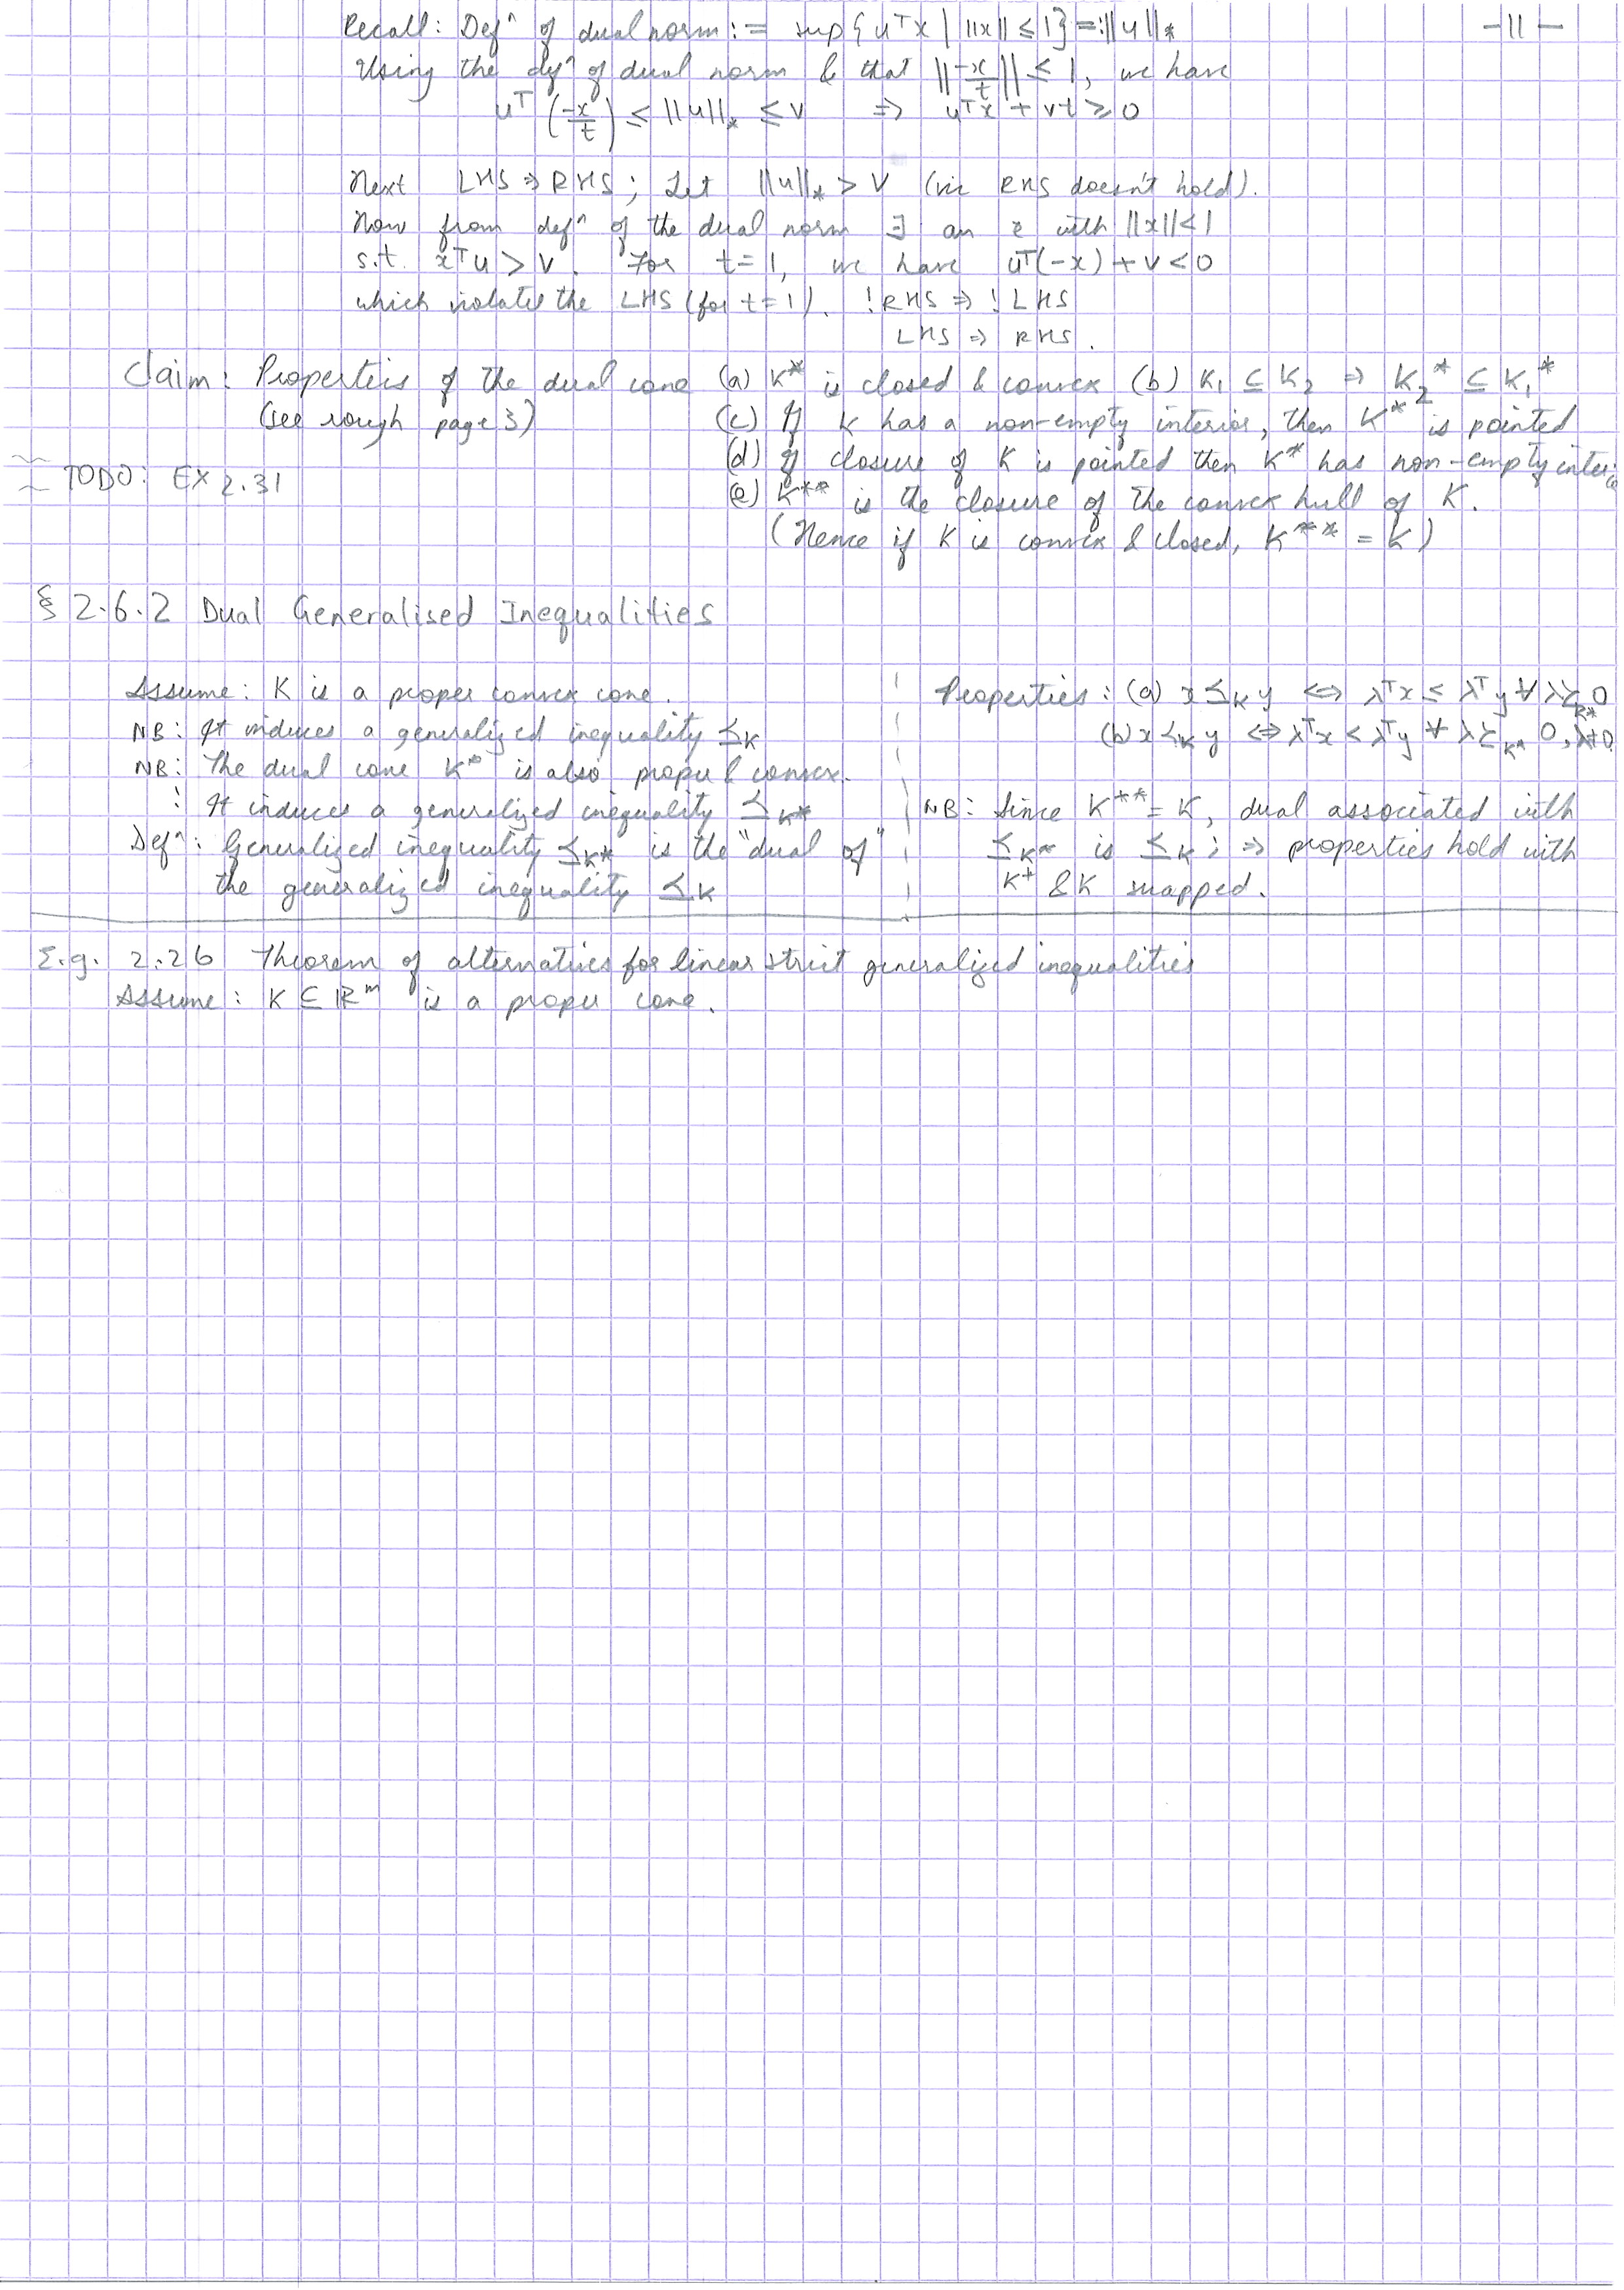 Recall: Defⁿ of dual norm := sup{uᵀx | ||x|| ≤ 1} =: ||u||_*
-11-
Using the defⁿ of dual norm & that ||-x/t|| ≤ 1, we have
uᵀ(-x/t) ≤ ||u||_* ≤ v ⇒ uᵀx + vt ≥ 0
Next LHS ⇒ RHS; Let ||u||_* > v (viz RHS doesn't hold).
Now from defⁿ of the dual norm ∃ an x with ||x|| < 1
s.t. xᵀu > v. For t=1, we have uᵀ(-x) + v < 0
which violates the LHS (for t=1). !RHS ⇒ !LHS
LHS ⇒ RHS.
Claim: Properties of the dual cone (a) K* is closed & convex (b) K₁ ⊆ K₂ ⇒ K₂* ⊆ K₁*
(see rough page 3) (c) If K has a non-empty interior, then K* is pointed
(d) If closure of K is pointed then K* has non-empty interio
TODO: EX 2.31
(e) K** is the closure of the convex hull of K.
(Hence if K is convex & closed, K** = K)
§ 2.6.2 Dual Generalised Inequalities
Assume: K is a proper convex cone.
NB: It induces a generalized inequality ⪯_K
NB: The dual cone K* is also proper & convex.
: It induces a generalized inequality ⪯_K*
Defⁿ: Generalized inequality ⪯_K* is the "dual of"
the generalized inequality ⪯_K
Properties: (a) x ⪯_K y ⇔ λᵀx ≤ λᵀy ∀ λ ⪰_K* 0
(b) x ≺_K y ⇔ λᵀx < λᵀy ∀ λ ⪰_K* 0, λ≠0
NB: Since K** = K, dual associated with
⪯_K* is ⪯_K; ⇒ properties hold with
K* & K swapped.
E.g. 2.26 Theorem of alternatives for linear strict generalized inequalities
Assume: K ⊆ ℝᵐ is a proper cone.